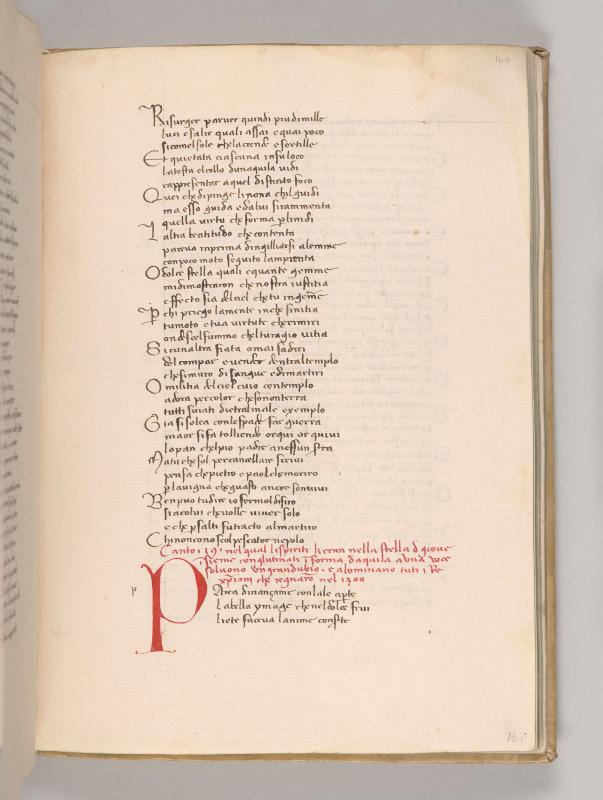 160
Risurger parver quindi piu di mille
luci e salir quali assai e quai poco
si comel sole chelaccende e sortille
Et quietata ciascuna in suo loco
la testa el collo dunaquila vidi
rappresentar a quel distinto foco
Quei che dipinge li non a chil guidi
ma esso guida e da lui si rammenta
quella virtu che forma p linidi
Laltra beatitudo che contenta
pareva inprima dingilliarsi alemme
con poco moto seguito lamprenta
O dolce stella quali e quante gemme
mi dimostraron che nostra iustitia
effecto sia del ciel che tu ingeme
P chi priego la mente in che sinitia
tu moto e tua virtute che rimiri
ondescel fummo chel tu ragio vitia
Si cunaltra fiata omai sadiri
del comprar e vender dentral templo
che si muro di sangue e di martiri
O militia del ciel cui o contemplo
adora per color che sono n terra
tutti sviati dietral male exemplo
Gia si solea con le spade far guerra
ma or si fa tolliendo or qui or quivi
lo pan chel pio padre a nessun serra
Ma tu che sol per cancellare scrivi
pensa che pietro e paol che moriro
p la vigna che guasti ancor son vivi
Ben puo tu dire io fermol disiro
si a colui che volle viver solo
e che p salti fu tracto al martiro
Chi non conosco il pescator ne polo
Canto 19 nel qual li spiriti keran nella stella d giove
isieme conglutinati i forma daquila a una voce
solvono un gran dubio e abominano tuti i Re
xpiani che regnaro nel 1300
p
Parea dinançi a me con lale apte
La bella ymage che nel dolce frui
liete faceva lanime conserte